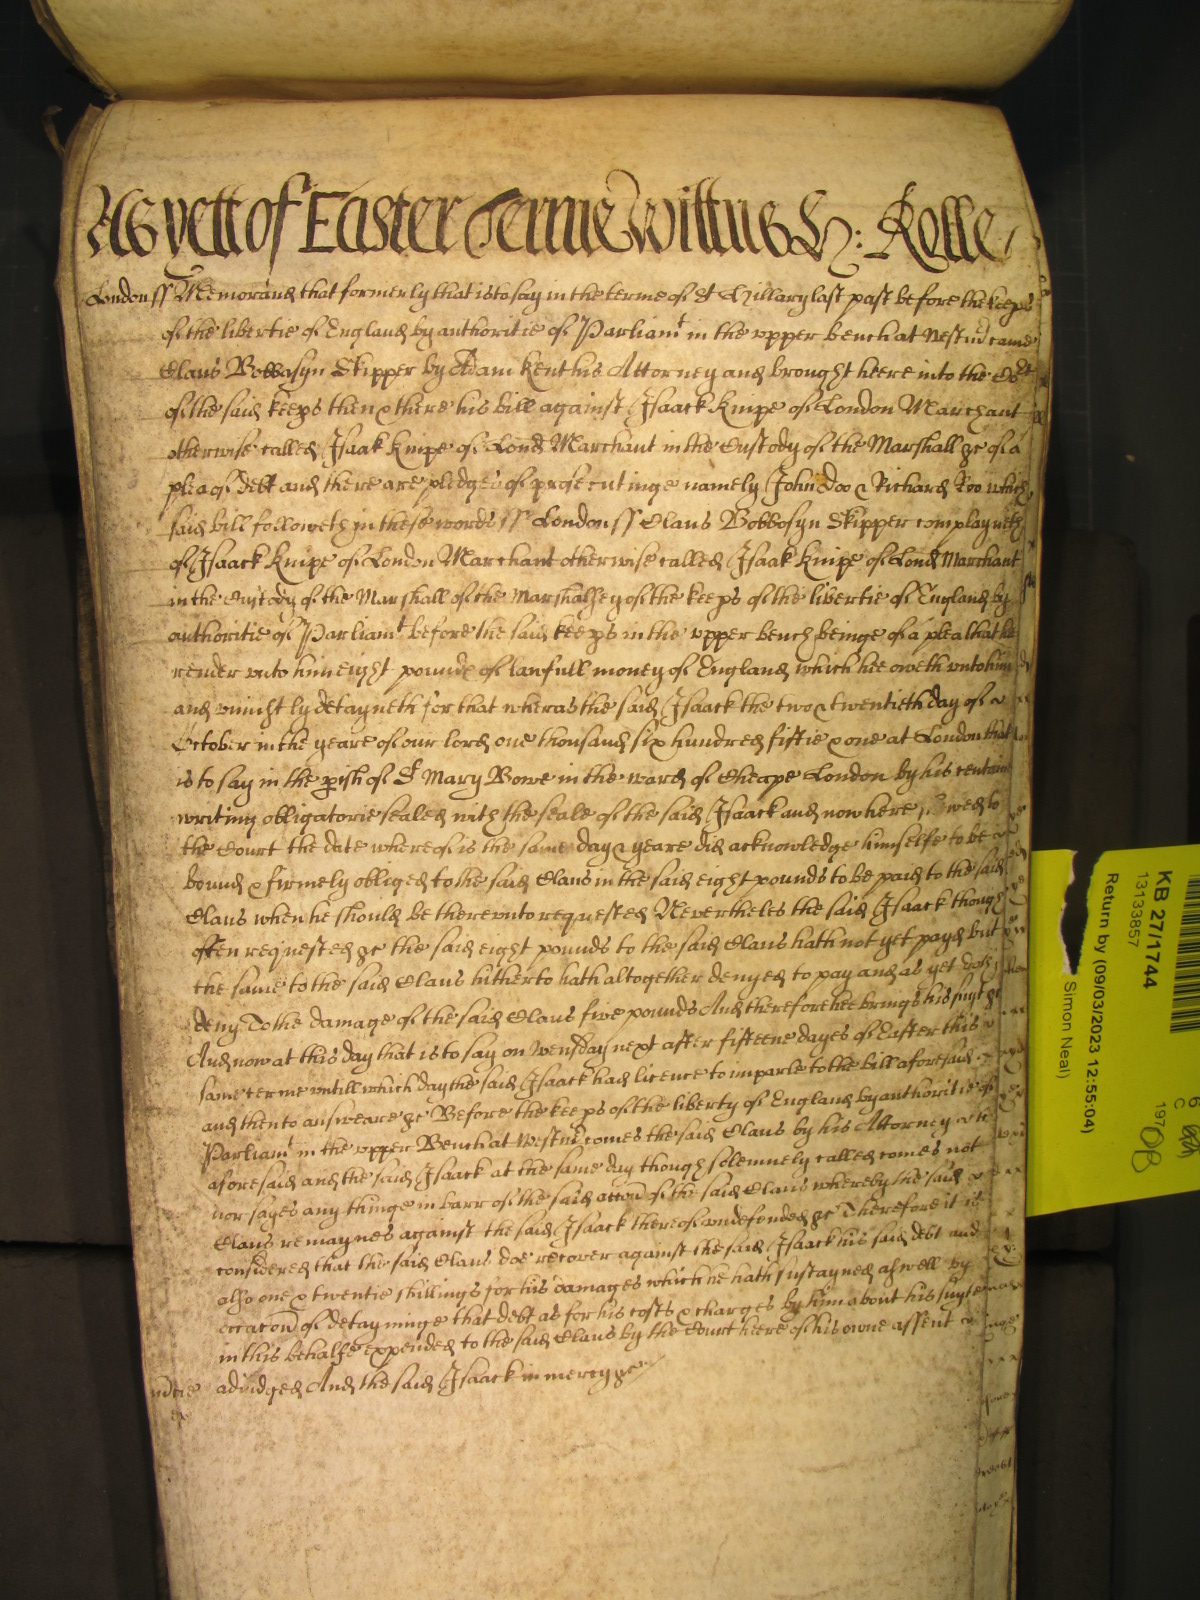 As yett of Easter Terme Wittus H: Rolle
London ss Memorand that formerly that is to say in the terme of St Hillary last past before the keeps
of the libertie of England by authoritie of Parliamt in the upper bench at Westm came
Claus Bobbosyn Skipper by Adam Kent his Attorney and brought heere into the Cort
of the said keeps then & there his bill against Isaack Knipe of London Marchant
otherwise called Isaak Knipe of Lond Marchant in the Custody of the Marshall &c of a
plea of debt and there are pledges of prosecutinge namely John Doo & Richard Roo which
said bill followeth in these words ss London ss Claus Bobbosyn Skipper complayneth
of Isaack Knipe of London Marchant otherwise called Isaak Knipe of Lond Marchant
in the Custody of the Marshall of the Marshalsey of the keeps of the libertie of England by
authoritie of Parliamt before the said keeps in the upper bench beinge of a plea that he
render unto him eight pounds of lawfull money of England which hee oweth unto him
and uniustly detayneth for that wheras the said Isaack the two & twentieth day of
October in the yeare of our lord one thousand six hundred fiftie & one at London that
is to say in the pish of St Mary Bowe in the ward of Cheape London by his certaine
writing obligatorie sealed with the seale of the said Isaack and now here shewed to
the Court the date whereof is the same day & yeare did acknowledge himselfe to be
bound & firmely obliged to the said Claus in the said eight pounds to be paid to the said
Claus when he should be thereunto requested Nevertheles the said Isaack though
often requested &c the said eight pounds to the said Claus hath not yet payd but
the same to the said Claus hitherto hath altogether denyed to pay and as yet doth
deny To the damage of the said Claus five pounds And therefore hee brings his suyt &c
And now at this day that is to say on Wensday next after fifteene dayes of Easter this
same terme untill which day the said Isaack had licence to imparle to the bill aforesaid
and then to answeare &c Before the keeps of the liberty of England by authoritie of
Parliamt in the upper Bench at Westm comes the said Claus by his Attorney
aforesaid and the said Isaack at the same day though solemnely called comes not
nor sayes any thinge in barr of the said accon of the said Claus whereby the said
Claus remaynes against the said Isaack thereof undefended &c Therefore it is
considered that the said Claus doe recover against the said Isaack his said debt and
also one & twentie shillings for his damages which he hath sustayned aswell by
occacon of detayninge that debt as for his costs & charges by him about his suyte
in this behalfe expended to the said Claus by the Court heere of his owne assent
adiudged And the said Isaack in mercy &c
KB 27/1744
13133857
Return by (09/03/2023 12:55:04)
Simon Neal)